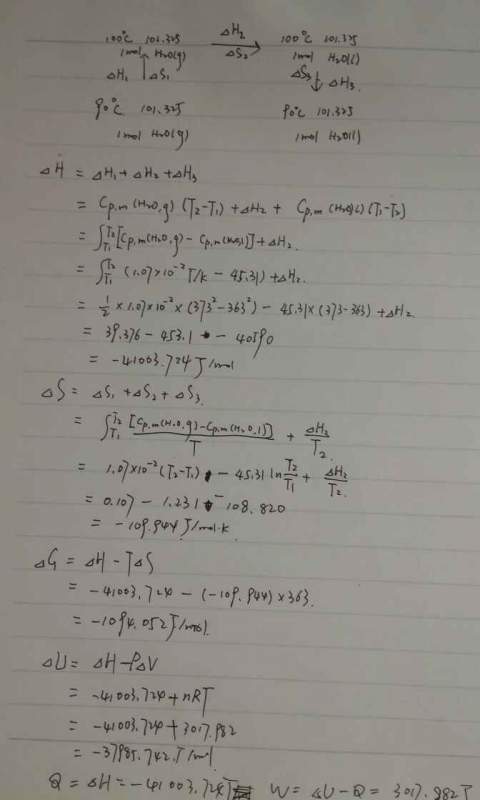 100℃ 101.325 ΔH₂ 100℃ 101.325
1mol H₂O(g) ΔS₂ 1mol H₂O(l)
ΔH₁ ΔS₁ ΔS₃ ΔH₃
90℃ 101.325 90℃ 101.325
1mol H₂O(g) 1mol H₂O(l)
ΔH = ΔH₁ + ΔH₂ + ΔH₃
= Cp,m(H₂O,g) (T₂-T₁) + ΔH₂ + Cp,m(H₂O,l) (T₁-T₂)
= ∫_{T₁}^{T₂} [Cp,m(H₂O,g) - Cp,m(H₂O,l)] + ΔH₂
= ∫_{T₁}^{T₂} (1.07×10⁻² T/K - 45.31) + ΔH₂
= 1/2 × 1.07×10⁻² × (373² - 363²) - 45.31×(373-363) + ΔH₂
= 39.376 - 453.1 - 40590
= -41003.724 J/mol
ΔS = ΔS₁ + ΔS₂ + ΔS₃
= ∫_{T₁}^{T₂} [Cp,m(H₂O,g) - Cp,m(H₂O,l)]/T + ΔH₂/T₂
= 1.07×10⁻² (T₂-T₁) - 45.31 ln T₂/T₁ + ΔH₂/T₂
= 0.107 - 1.231 - 108.820
= -109.944 J/mol·K
ΔG = ΔH - TΔS
= -41003.724 - (-109.944)×363
= -1094.052 J/mol
ΔU = ΔH - PΔV
= -41003.724 + nRT
= -41003.724 + 3017.982
= -37985.742 J/mol
Q = ΔH = -41003.724J W = ΔU - Q = 3017.982J